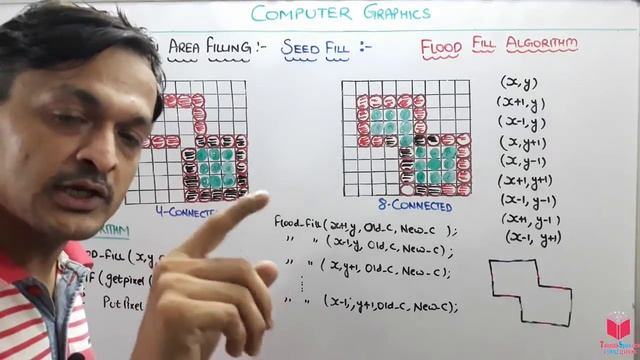 COMPUTER GRAPHICS
AREA FILLING :- SEED FILL :- FLOOD FILL ALGORITHM
4-CONNECTE
8-CONNECTED
(x, y)
(x+1, y)
(x-1, y)
(x, y+1)
(x, y-1)
(x+1, y+1)
(x-1, y-1)
(x+1, y-1)
(x-1, y+1)
if (getpixel (
PutPixel
Flood_fill (x+1, y, Old_C, New_C );
" " (x-1, y, Old_C, New_C);
" " (x, y+1, Old_C, New_C);
" " (x-1, y+1, Old_C, New_C);